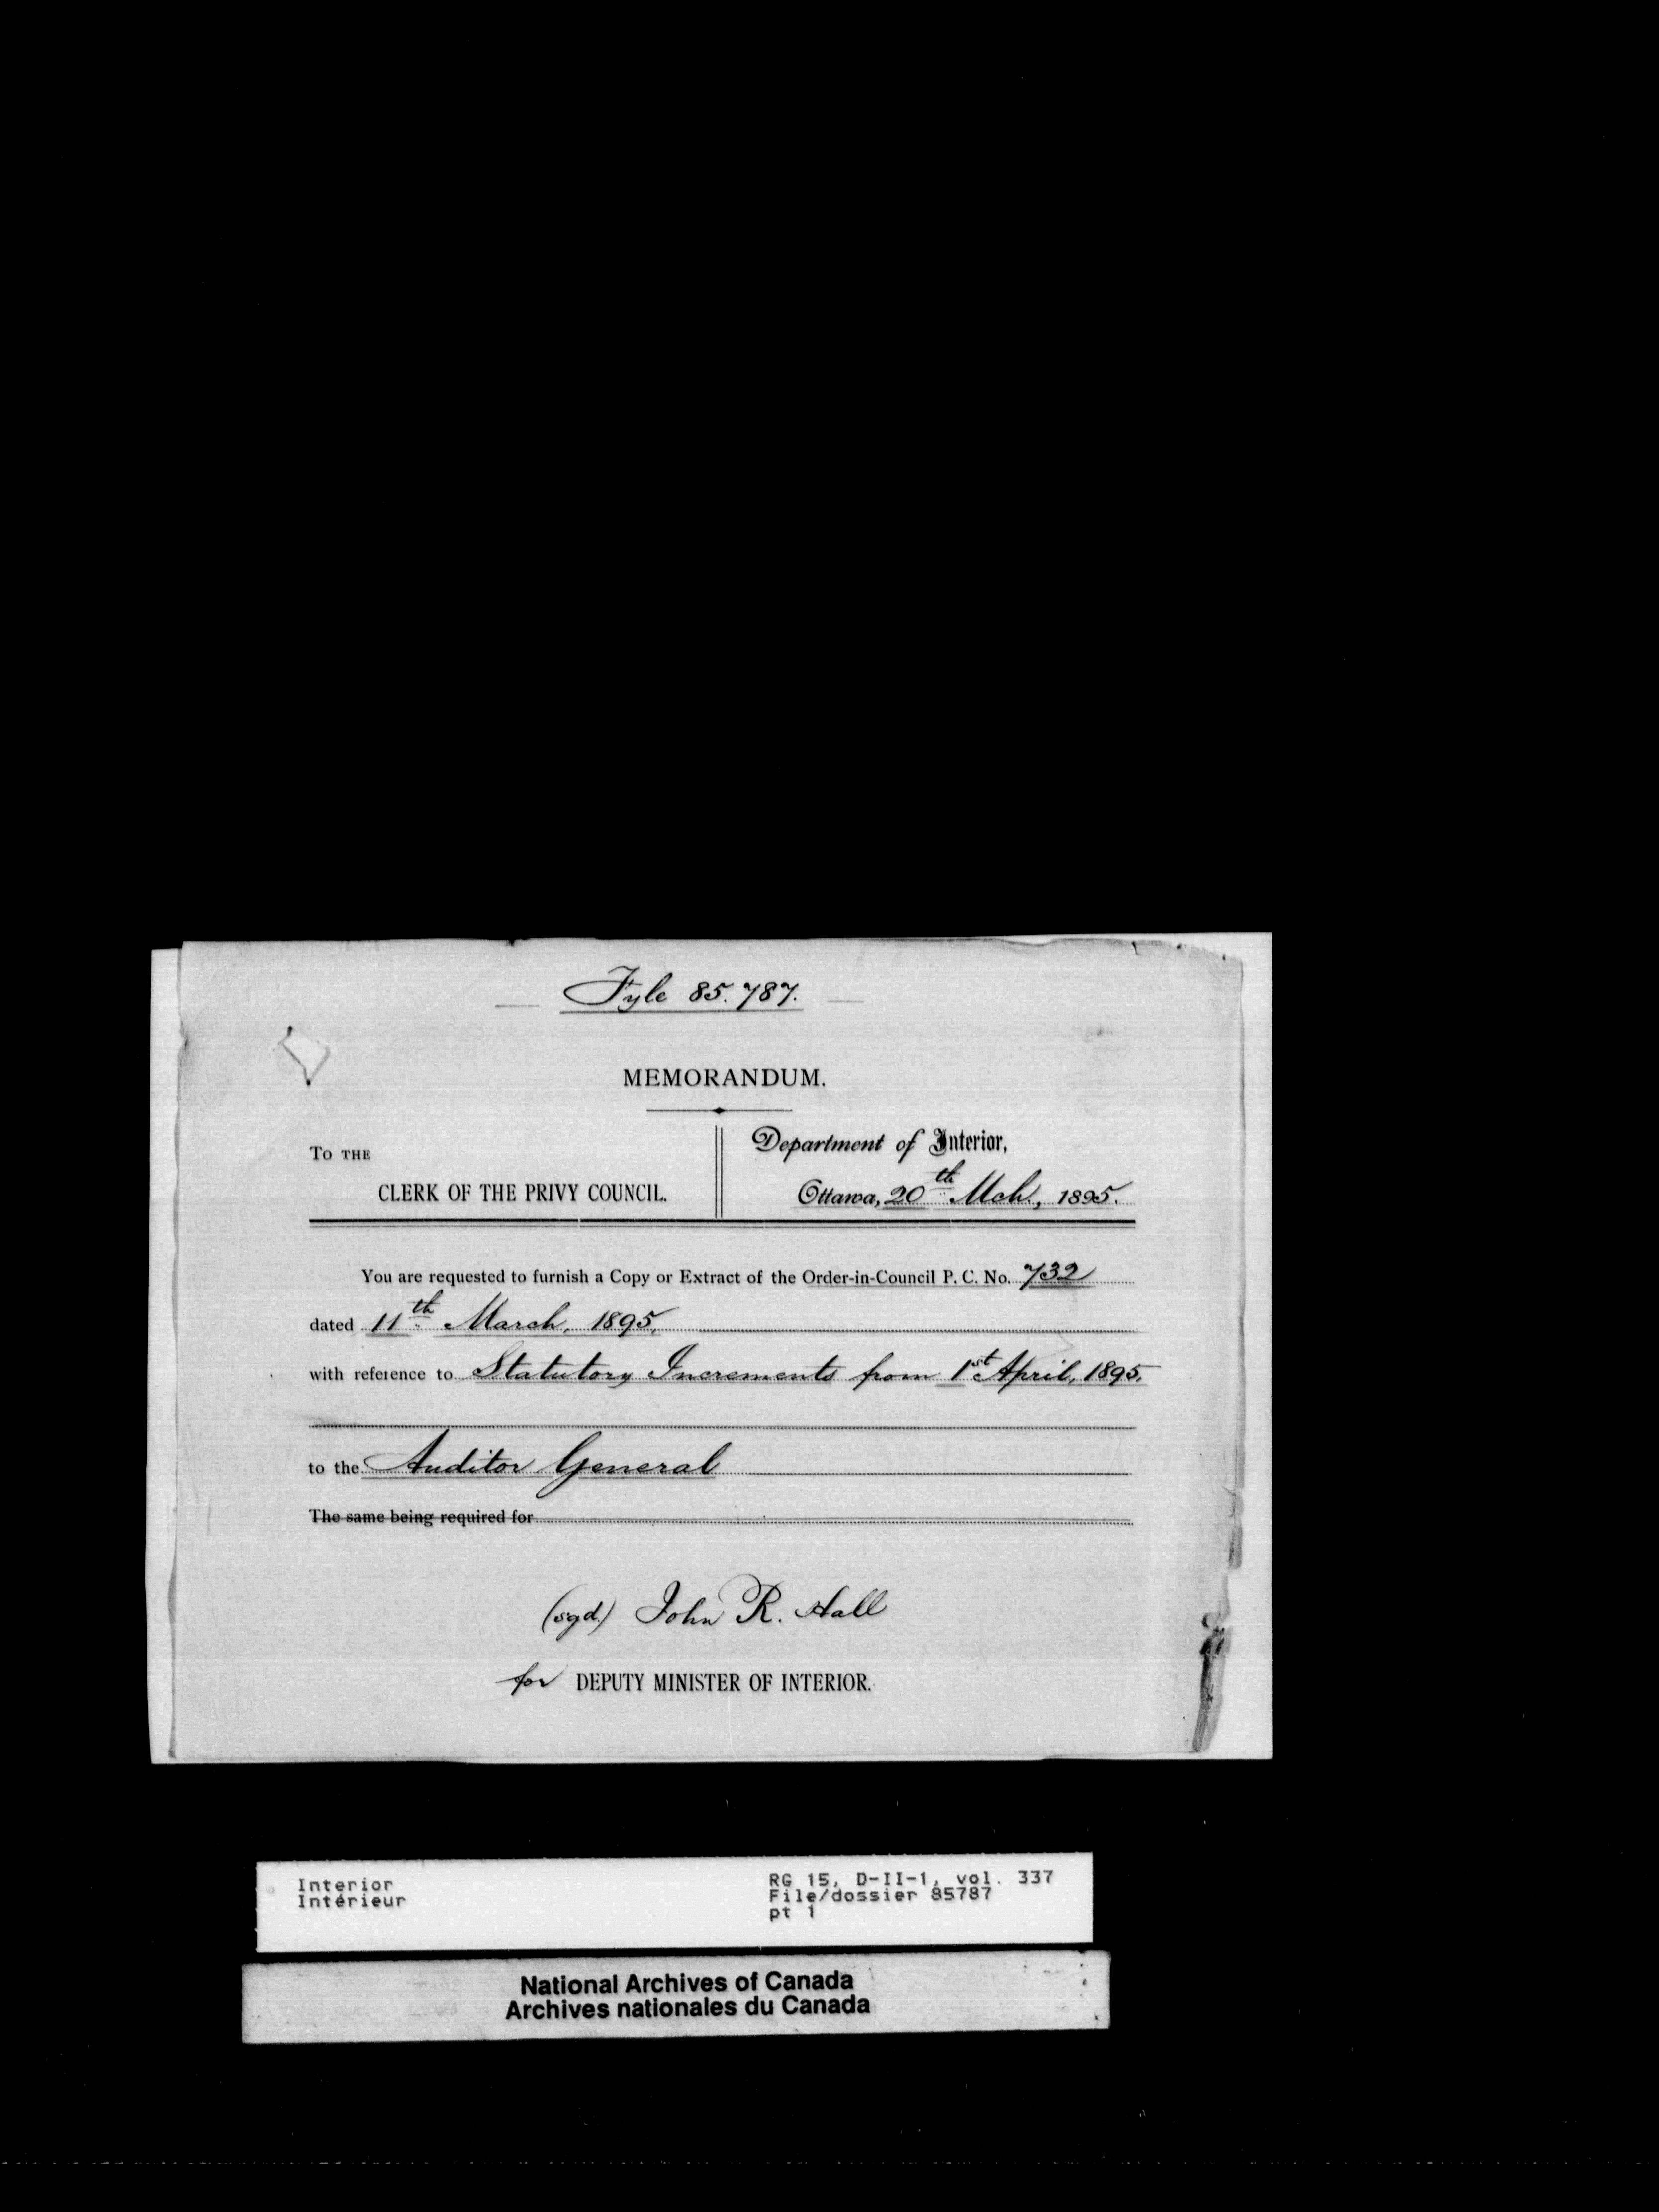 Fyle 85.787.
MEMORANDUM.
To THE
CLERK OF THE PRIVY COUNCIL.
Department of Interior,
Ottawa, 20th Mch., 1895.
You are requested to furnish a Copy or Extract of the Order-in-Council P. C. No. 732
dated 11th March, 1895,
with reference to Statutory Increments from 1st April, 1895,
to the Auditor General
The same being required for
(sgd.) John R. Hall
for DEPUTY MINISTER OF INTERIOR.
Interior
Intérieur
RG 15, D-II-1, vol. 337
File/dossier 85787
pt 1
National Archives of Canada
Archives nationales du Canada